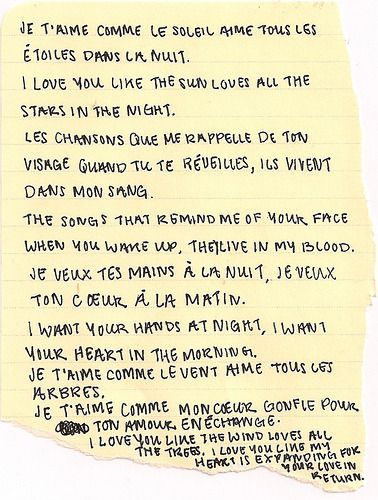 JE T'AIME COMME LE SOLEIL AIME TOUS LES
ÉTOILES DANS LA NUIT.
I LOVE YOU LIKE THE SUN LOVES ALL THE
STARS IN THE NIGHT.
LES CHANSONS QUE ME RAPPELLE DE TON
VISAGE QUAND TU TE RÉVEILLES, ILS VIVENT
DANS MON SANG.
THE SONGS THAT REMIND ME OF YOUR FACE
WHEN YOU WAKE UP, THEY LIVE IN MY BLOOD.
JE VEUX TES MAINS À LA NUIT, JE VEUX
TON CŒUR À LA MATIN.
I WANT YOUR HANDS AT NIGHT, I WANT
YOUR HEART IN THE MORNING.
JE T'AIME COMME LE VENT AIME TOUS LES
ARBRES.
JE T'AIME COMME MON CŒUR GONFLE POUR
TON AMOUR EN ÉCHANGE.
I LOVE YOU LIKE THE WIND LOVES ALL
THE TREES, I LOVE YOU LIKE MY
HEART IS EXPANDING FOR
YOUR LOVE IN
RETURN.